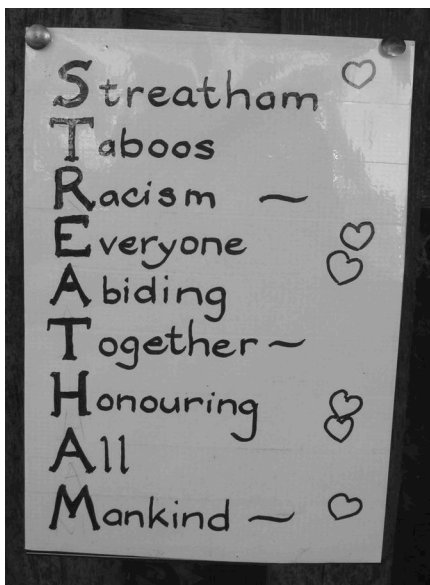 Streatham
Taboos
Racism ~
Everyone
Abiding
Together ~
Honouring
All
Mankind ~